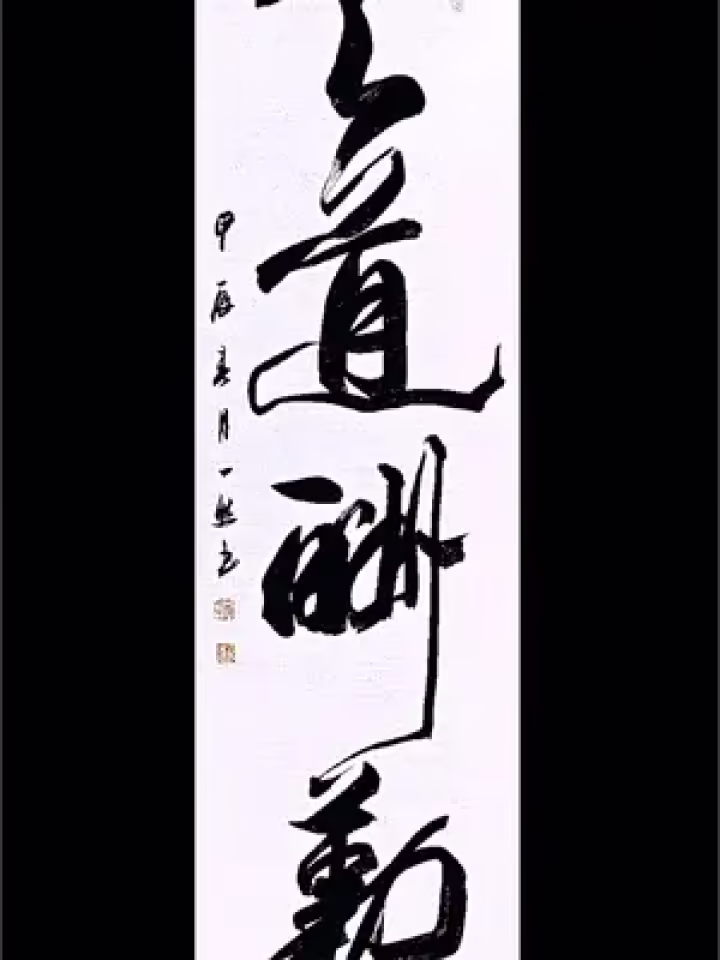 天道酬勤
甲辰春月一然书